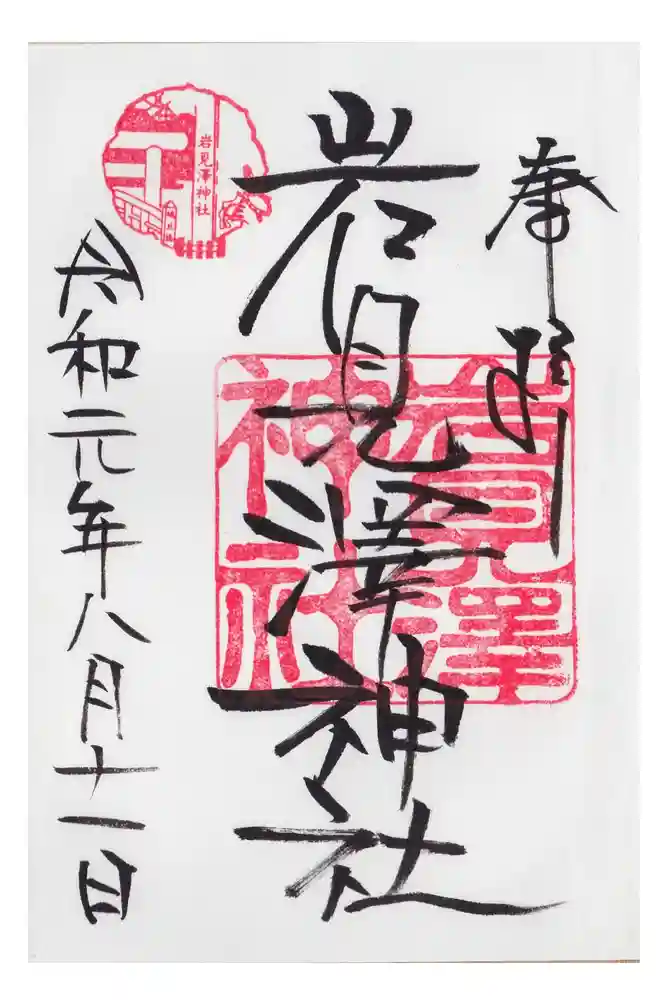 奉拝
岩見澤神社
岩見澤神社
令和元年八月十一日
岩見澤神社